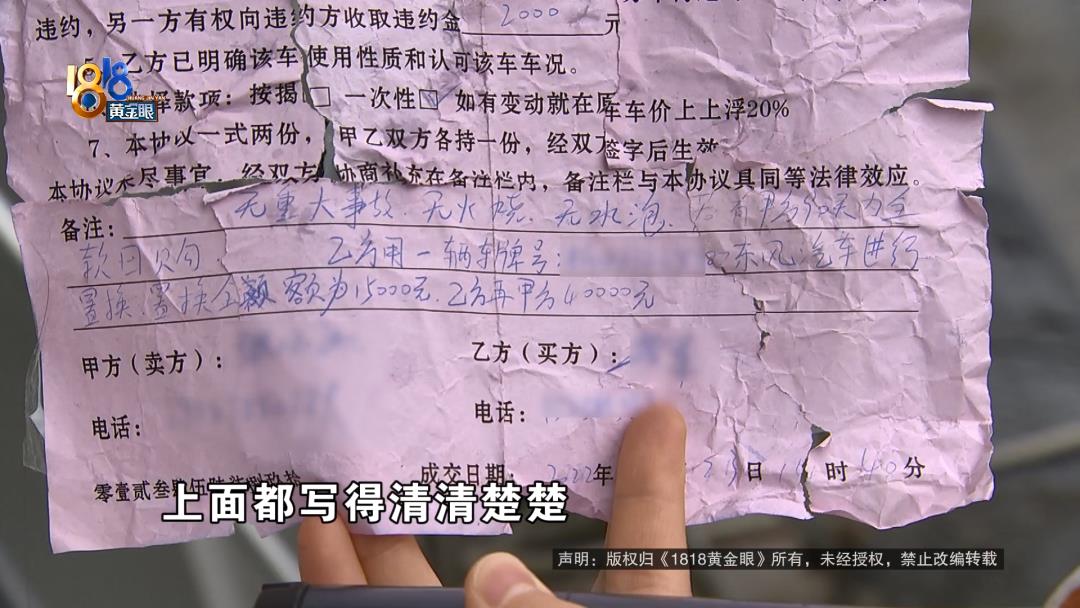 违约，另一方有权向违约方收取违约金 2000 元
乙方已明确该车使用性质和认可该车车况。
款项：按揭□ 一次性☑ 如有变动就在原车车价上上浮20%
7、本协议一式两份，甲乙双方各持一份，经双方签字后生效
本协议未尽事宜，经双方协商补充在备注栏内，备注栏与本协议具同等法律效应。
备注：无重大事故．无火烧．无水泡．若有甲方
款回购 乙方用一辆车牌号： 东风汽车进行
置换．置换金额 额为15000元．乙方再甲方40000元
甲方（卖方）：
乙方（买方）：
电话：
电话：
成交日期：2022年 日 时 40分
零壹贰叁肆伍陆柒捌玖拾
1818
HUANG JIN YAN
黄金眼
上面都写得清清楚楚
声明：版权归《1818黄金眼》所有，未经授权，禁止改编转载